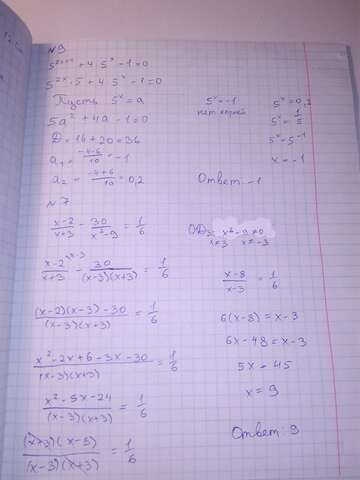 №9
5^{2x+1} + 4·5^x - 1 = 0
5^{2x}·5 + 4·5^x - 1 = 0
Пусть 5^x = a
5a² + 4a - 1 = 0
D = 16 + 20 = 36
a₁ = (-4-6)/10 = -1
a₂ = (-4+6)/10 = 0,2
5^x = -1
нет корней
5^x = 0,2
5^x = 1/5
5^x = 5^{-1}
x = -1
Ответ: -1
№7
(x-2)/(x+3) - 30/(x²-9) = 1/6
ОДЗ: x²-9≠0
x≠3 x≠-3
(x-2)^{\x-3}/(x+3) - 30/((x-3)(x+3)) = 1/6
((x-2)(x-3)-30)/((x-3)(x+3)) = 1/6
(x²-2x+6-3x-30)/((x-3)(x+3)) = 1/6
(x²-5x-24)/((x-3)(x+3)) = 1/6
(x-8)/(x-3) = 1/6
6(x-8) = x-3
6x-48 = x-3
5x = 45
x = 9
Ответ: 9